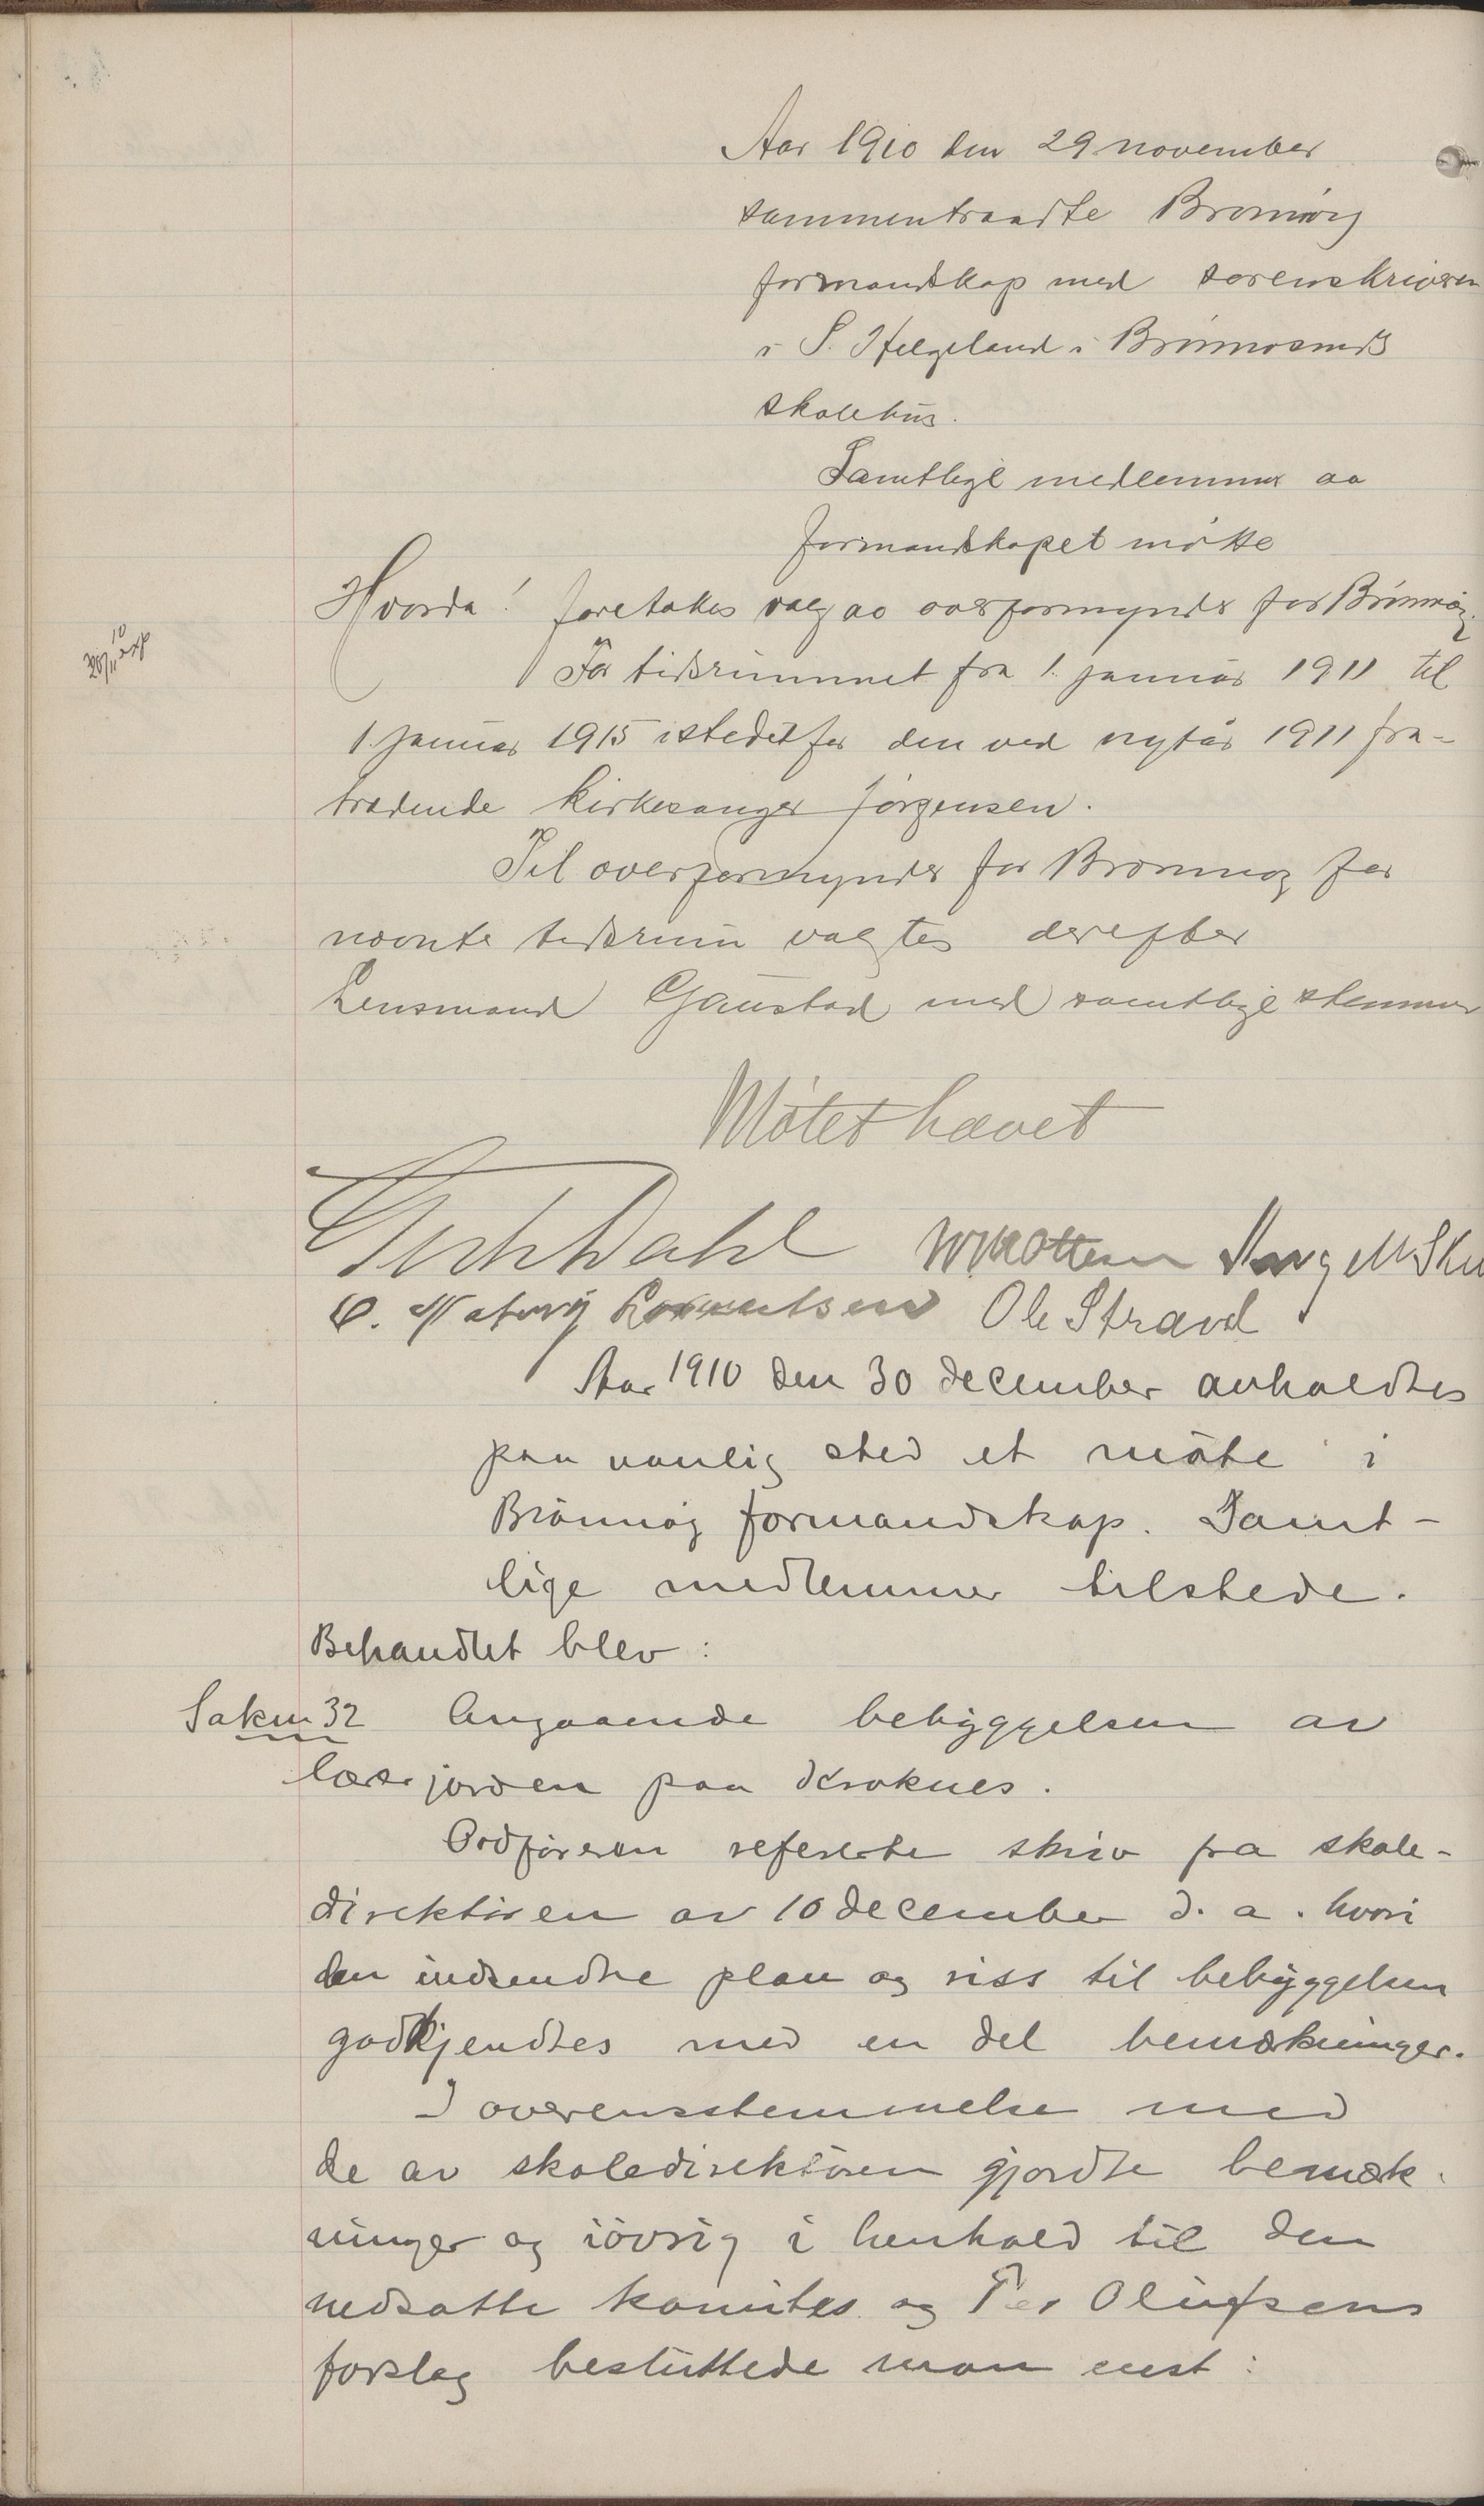 Aar 1910 den 29 november
sammentraadte Brønnøy
formandskap med sorenskriveren
i S. Helgeland i Brønnøsunds
skolehus.
Samtlige medlemmer av
formandskapet møtte
Hvorda! foretakes valg av overformynder for Brønnøy.
For tidsrummet fra 1. januar 1911 til
1. januar 1915 istedetfor den ved nytår 1911 fra-
trædende kirkesanger Jørgensen.
Til overformynder for Brønnøy for
nævnte tidsrum valgtes derefter
Lensmand Gaustad med samtlige stemmer
Møtet hævet
Dahl Ottem M. Sku
Ole Strand
Aar 1910 den 30 december avholdtes
paa vanlig sted et møte i
Brønnøy formandskap. Samt-
lige medlemmer tilstede.
Behandlet blev:
Sakn 32 Angaaende bebyggelsen av
lærerjorden paa Kroknes.
Ordføreren refererte skriv fra skole-
direktøren av 10 december d. a. hvori
den indsendte plan og riss til bebyggelsen
godkjendtes med en del bemærkninger.
I overensstemmelse med
de av skoledirektøren gjordte bemærk-
ninger og iøvrig i henhold til den
nedsatte komites og Per Olufsens
forslag besluttede man enst: